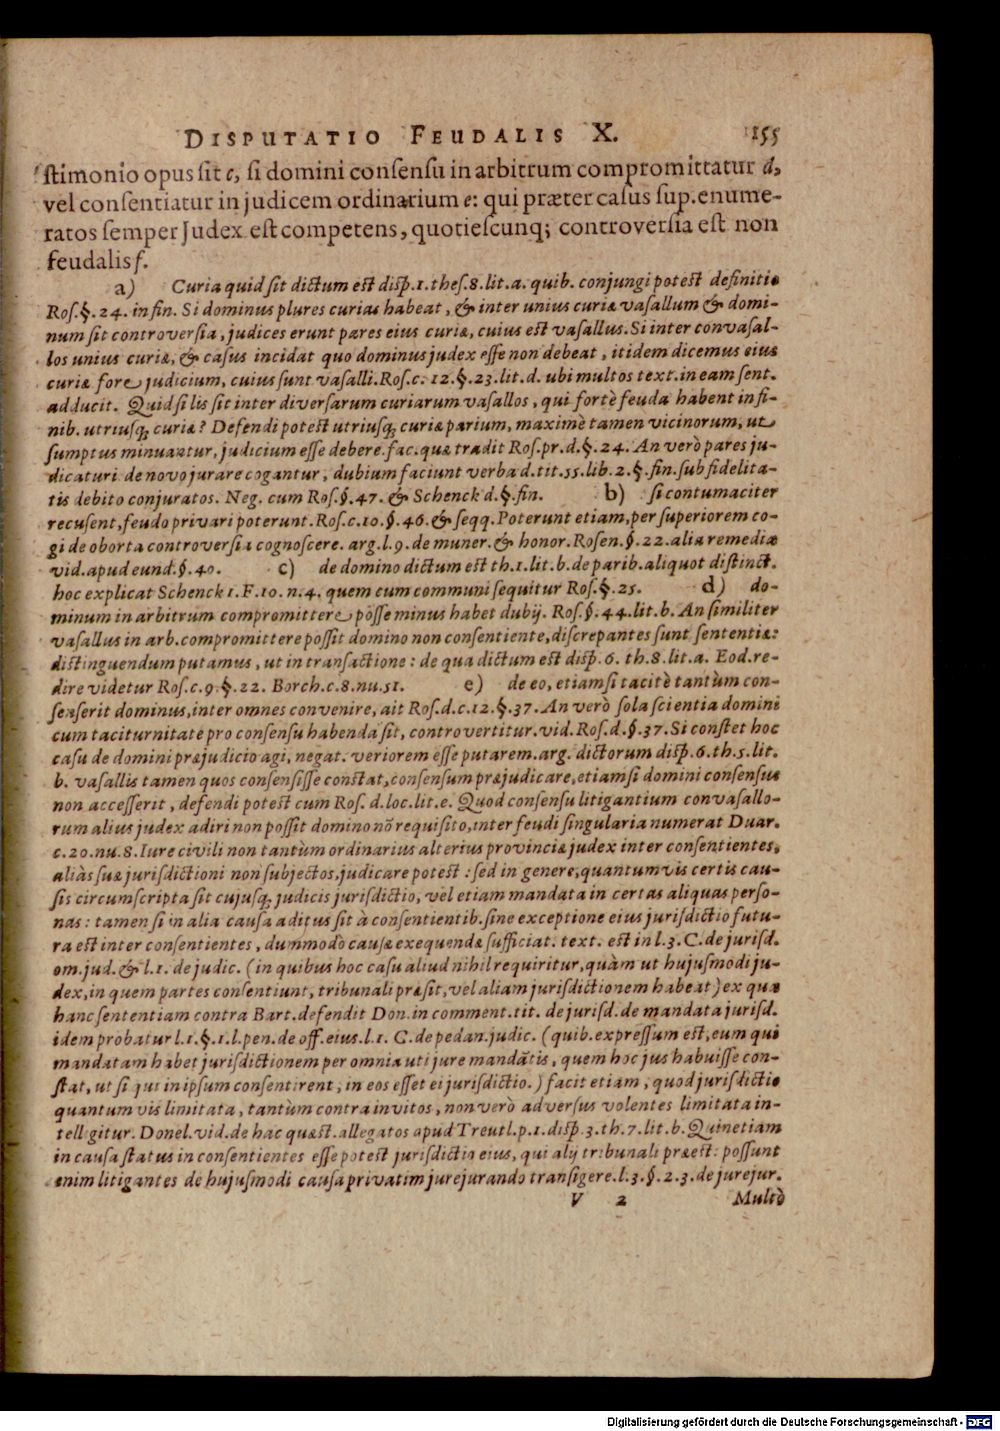 DISPUTATIO FEUDALIS X. 155
ſtimonio opus ſit c, ſi domini conſenſu in arbitrum compromittatur d,
vel conſentiatur in judicem ordinarium e: qui præter caſus ſup. enume-
ratos ſemper Judex eſt competens, quotieſcunq; controverſia eſt non
feudalis f.
a) Curia quid ſit dictum eſt diſp. 1. theſ. 8. lit. a. quib. conjungi poteſt definitio
Roſ. §. 24. in fin. Si dominus plures curias habeat, & inter unius curiæ vaſallum & domi-
num ſit controverſia, judices erunt pares eius curiæ, cuius eſt vaſallus. Si inter convaſal-
los unius curiæ, & caſus incidat quo dominus judex eſſe non debeat, itidem dicemus eius
curiæ fore judicium, cuius ſunt vaſalli. Roſ. c. 12. §. 23. lit. d. ubi multos text. in eam ſent.
adducit. Quid ſi lis ſit inter diverſarum curiarum vaſallos, qui fortè feuda habent in fi-
nib. utriuſq; curiæ? Defendi poteſt utriuſq; curiæ parium, maximè tamen vicinorum, ut
ſumptus minuantur, judicium eſſe debere. fac. quæ tradit Roſ. pr. d. §. 24. An verò pares ju-
dicaturi de novo jurare cogantur, dubium faciunt verba d. tit. 55. lib. 2. §. fin. ſub fidelita-
tis debito conjuratos. Neg. cum Roſ. §. 47. & Schenck d. §. fin. b) ſi contumaciter
recuſent, feudo privari poterunt. Roſ. c. 10. §. 46. & ſeqq. Poterunt etiam, per ſuperiorem co-
gi de oborta controverſia cognoſcere. arg. l. 9. de muner. & honor. Roſen. §. 22. alia remedia
vid. apud eund. §. 40. c) de domino dictum eſt th. 1. lit. b. de parib. aliquot diſtinct.
hoc explicat Schenck 1. F. 10. n. 4. quem cum communi ſequitur Roſ. §. 25. d) do-
minum in arbitrum compromittere poſſe minus habet dubij. Roſ. §. 44. lit. b. An ſimiliter
vaſallus in arb. compromittere poſſit domino non conſentiente, diſcrepantes ſunt ſententiæ:
diſtinguendum putamus, ut in tranſactione: de qua dictum eſt diſp. 6. th. 8. lit. a. Eod. re-
dire videtur Roſ. c. 9. §. 22. Borch. c. 8. nu. 51. e) de eo, etiamſi tacitè tantùm con-
ſenſerit dominus, inter omnes convenire, ait Roſ. d. c. 12. §. 37. An verò ſola ſcientia domini
cum taciturnitate pro conſenſu habenda ſit, controvertitur. vid. Roſ. d. §. 37. Si conſtet hoc
caſu de domini præjudicio agi, negat. veriorem eſſe putarem. arg. dictorum diſp. 6. th. 5. lit.
b. vaſallis tamen quos conſenſiſſe conſtat, conſenſum præjudicare, etiamſi domini conſenſus
non acceſſerit, defendi poteſt cum Roſ. d. loc. lit. e. Quod conſenſu litigantium convaſallo-
rum alius judex adiri non poſſit domino nõ requiſito, inter feudi ſingularia numerat Duar.
c. 20. nu. 8. Iure civili non tantùm ordinarius alterius provinciæ judex inter conſentientes,
aliàs ſuæ jurisdictioni non ſubjectos, judicare poteſt: ſed in genere, quantumvis certis cau-
ſis circumſcripta ſit cujuſq; judicis jurisdictio, vel etiam mandata in certas aliquas perſo-
nas: tamen ſi in alia cauſa aditus ſit à conſentientib. ſine exceptione eius jurisdictio futu-
ra eſt inter conſentientes, dummodò cauſæ exequendæ ſufficiat. text. eſt in l. 3. C. de jurisd.
om. jud. & l. 1. de judic. (in quibus hoc caſu aliud nihil requiritur, quàm ut hujuſmodi ju-
dex, in quem partes conſentiunt, tribunali præſit, vel aliam jurisdictionem habeat) ex quæ
hanc ſententiam contra Bart. defendit Don. in comment. tit. de jurisd. de mandata jurisd.
idem probatur l. 1. §. 1. l. pen. de off. eius. l. 1. C. de pedan. judic. (quib. expreſſum eſt, eum qui
mandatam habet jurisdictionem per omnia uti jure mandãtis, quem hoc jus habuiſſe con-
ſtat, ut ſi qui in ipſum conſentirent, in eos eſſet ei jurisdictio.) facit etiam, quod jurisdictio
quantumvis limitata, tantùm contra invitos, non verò adverſus volentes limitata in-
telligitur. Donel. vid. de hac quæſt. allegatos apud Treutl. p. 1. diſp. 3. th. 7. lit. b. Quinetiam
in cauſa ſtatus in conſentientes eſſe poteſt jurisdictio eius, qui alij tribunali præeſt: poſſunt
enim litigantes de hujuſmodi cauſa privatim jurejurando tranſigere. l. 3. §. 2. 3. de jurejur.
V 2 Multò
Digitalisierung gefördert durch die Deutsche Forschungsgemeinschaft - DFG